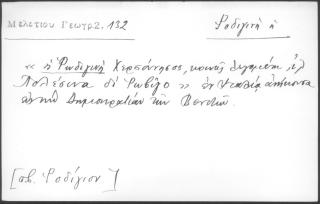 Μελετίου Γεωγρ. 2, 132
Ῥοδιγινὴ ἡ
« ἡ Ῥωδιγινὴ Χερσόννησος, κοινῶς λεγομένη ἰλ
Πολέσινα δὶ Ῥωβίγο » ἐν Ἰταλίᾳ ἀνήκουσα
Δημοκρατίαν τῶν Βενετῶν.
[πβ. Ῥοδίγιον.]